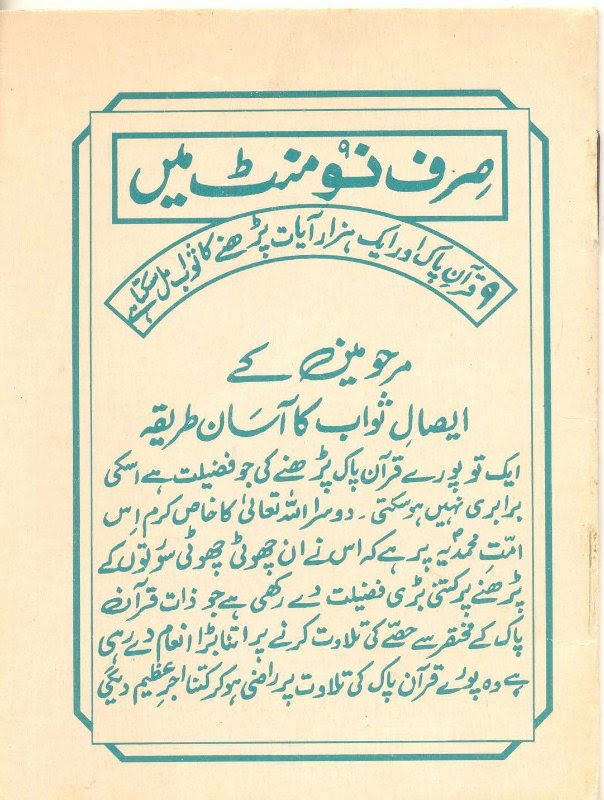 صِرف نو۹ منٹ میں
۹ قرآنِ پاک اور ایک ہزار آیات پڑھنے کا ثواب مل سکتا ہے
مرحومین کے
ایصالِ ثواب کا آسان طریقہ
ایک تو پورے قرآن پاک پڑھنے کی جو فضیلت ہے اسکی
برابری نہیں ہوسکتی۔ دوسرا اللہ تعالیٰ کا خاص کرم اِس
امّتِ محمدیہؐ پر ہے کہ اس نے ان چھوٹی چھوٹی سورتوں کے
پڑھنے پر کتنی بڑی فضیلت دے رکھی ہے جو ذات قرآن
پاک کے مختصر سے حصّے کی تلاوت کرنے پر اتنا بڑا انعام دے رہی
ہے وہ پورے قرآن پاک کی تلاوت پر راضی ہوکر کتنا اجرِ عظیم دیگی